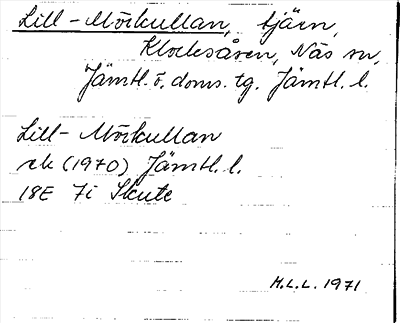 Lill-Mörkullan, tjärn,
Klocksåsen, Näs sn,
Jämtl. ö. doms. tg. Jämtl. l.
Lill-Mörkullan
rk (1970) Jämtl. l.
18E 7i Skute
H.L.L. 1971